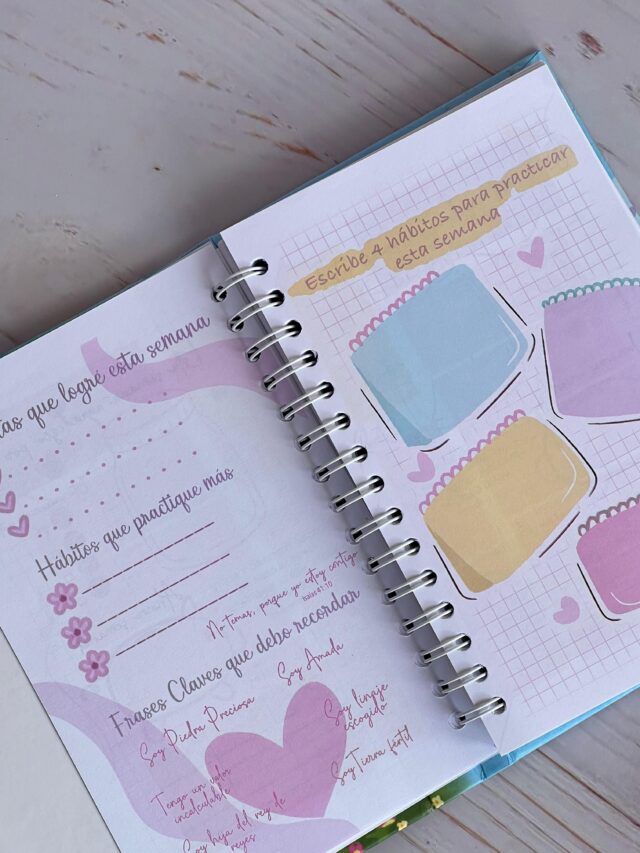 que logré esta semana
Hábitos que practique más
No temas, porque yo estoy contigo
Isaías 41:10
Frases Claves que debo recordar
Soy Amada
Soy Piedra Preciosa
Soy linaje
escogido
Tengo un valor
incalculable
Soy Tierra fértil
Soy hija del rey de
reyes
Escribe 4 hábitos para practicar
esta semana